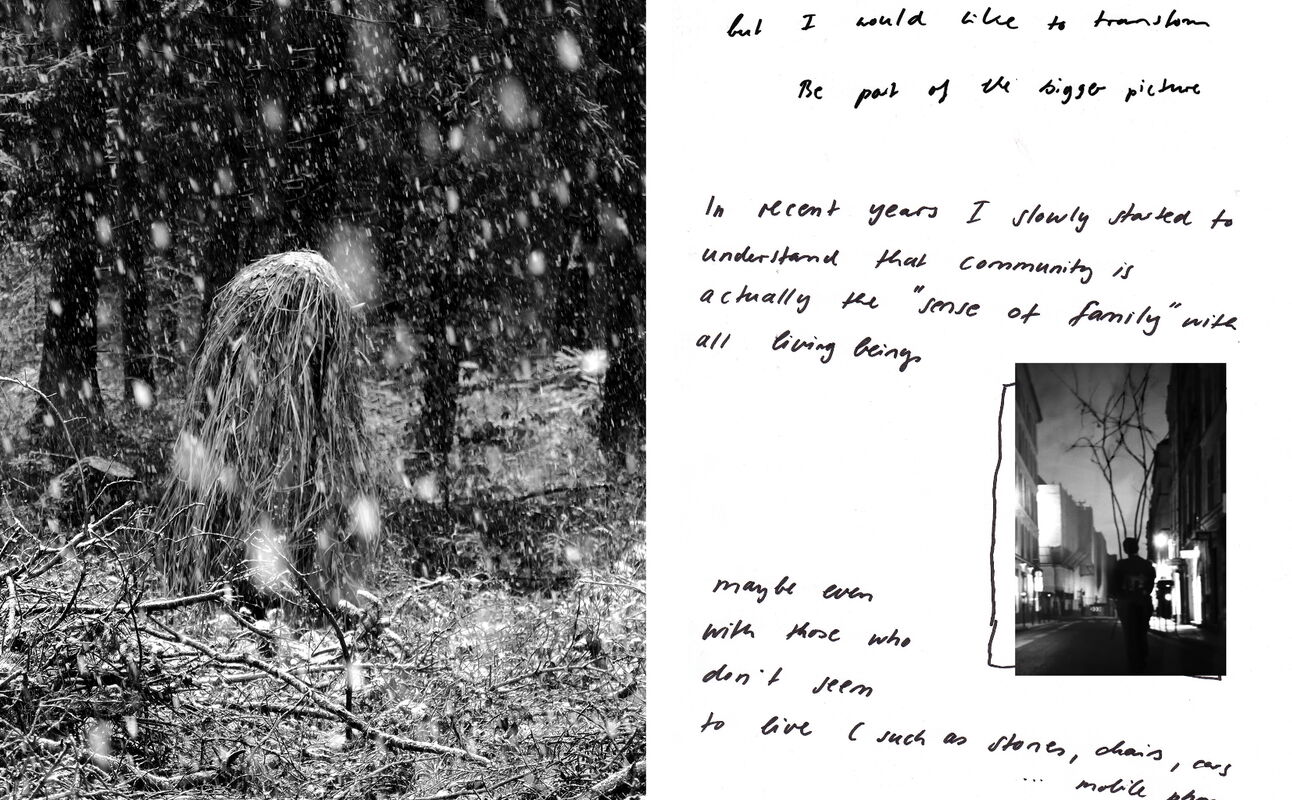 but I would like to transform
Be part of the bigger picture
In recent years I slowly started to
understand that community is
actually the "sense of family" with
all living beings
maybe even
with those who
don't seem
to live (such as stones, chairs, cars
... mobile